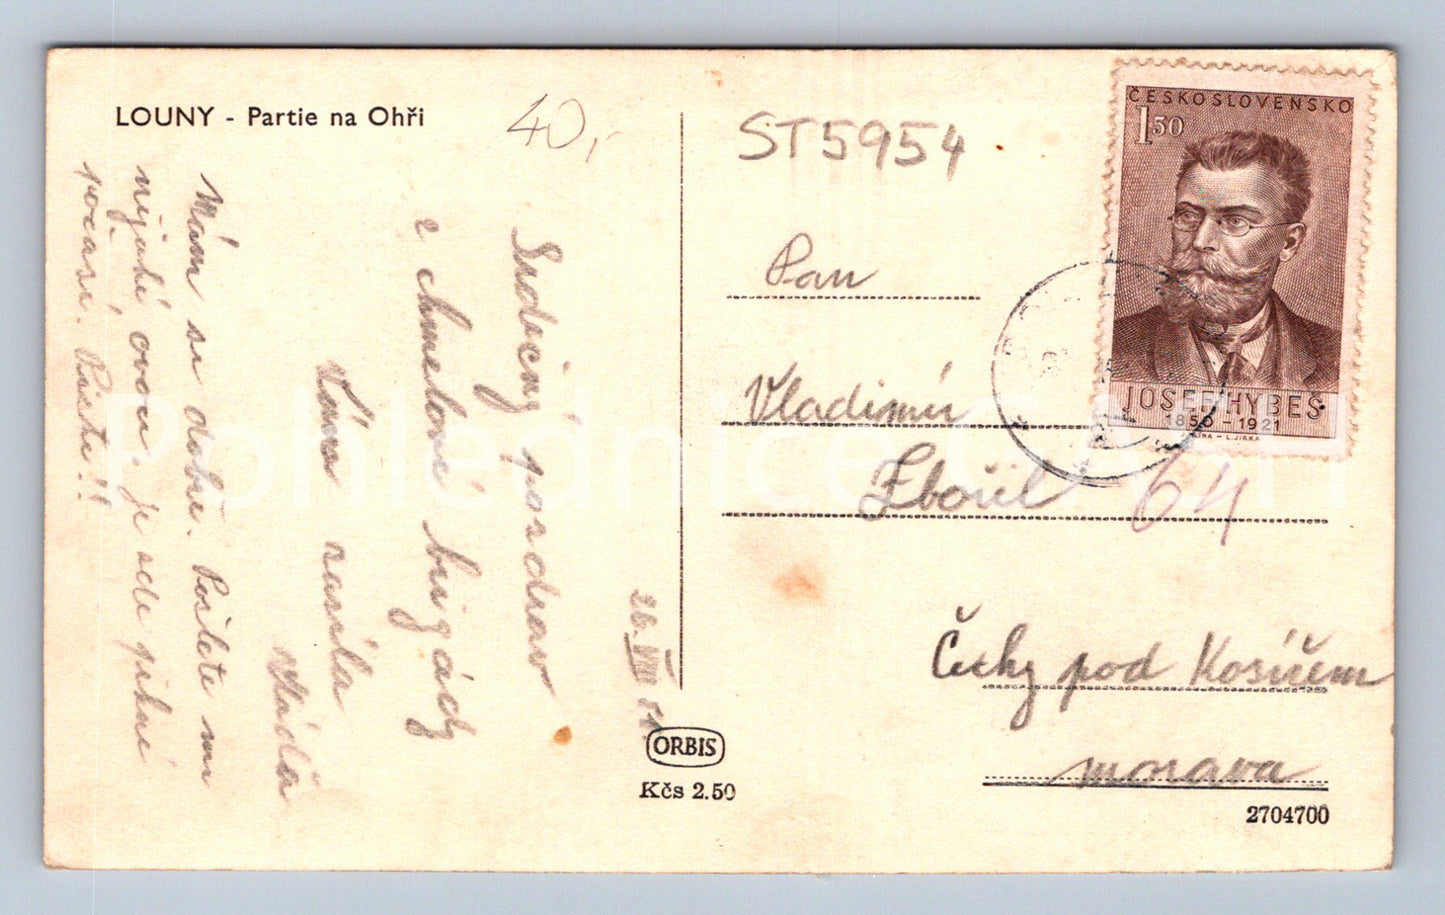 LOUNY - Partie na Ohři
40,-
ST5954
ČESKOSLOVENSKO
1 50
JOSEF HYBEŠ
1850 - 1921
L. JIRKA
Pan
Vladimír
Zbořil
64
Čechy pod Kosířem
Morava
2704700
26. VIII 51
Srdečný pozdrav
z chmelové brigády
Vám zasílá
Vláďa
Mám se dobře. Pošlete mi
nějaké ovoce, je zde pěkné
počasí. Pište!!
ORBIS
Kčs 2.50
Pohlednice.com